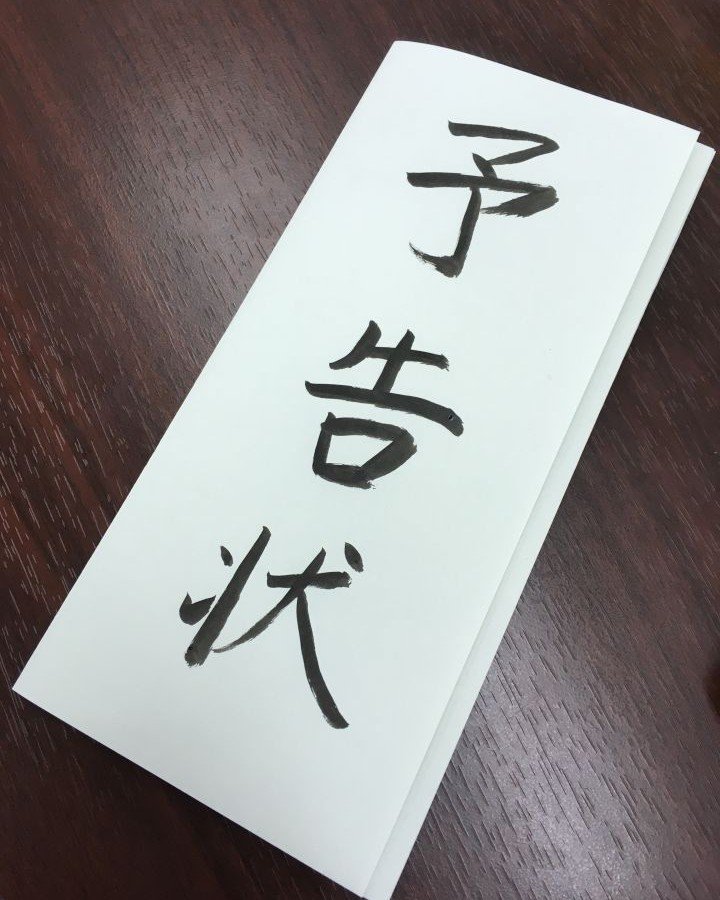 予告状